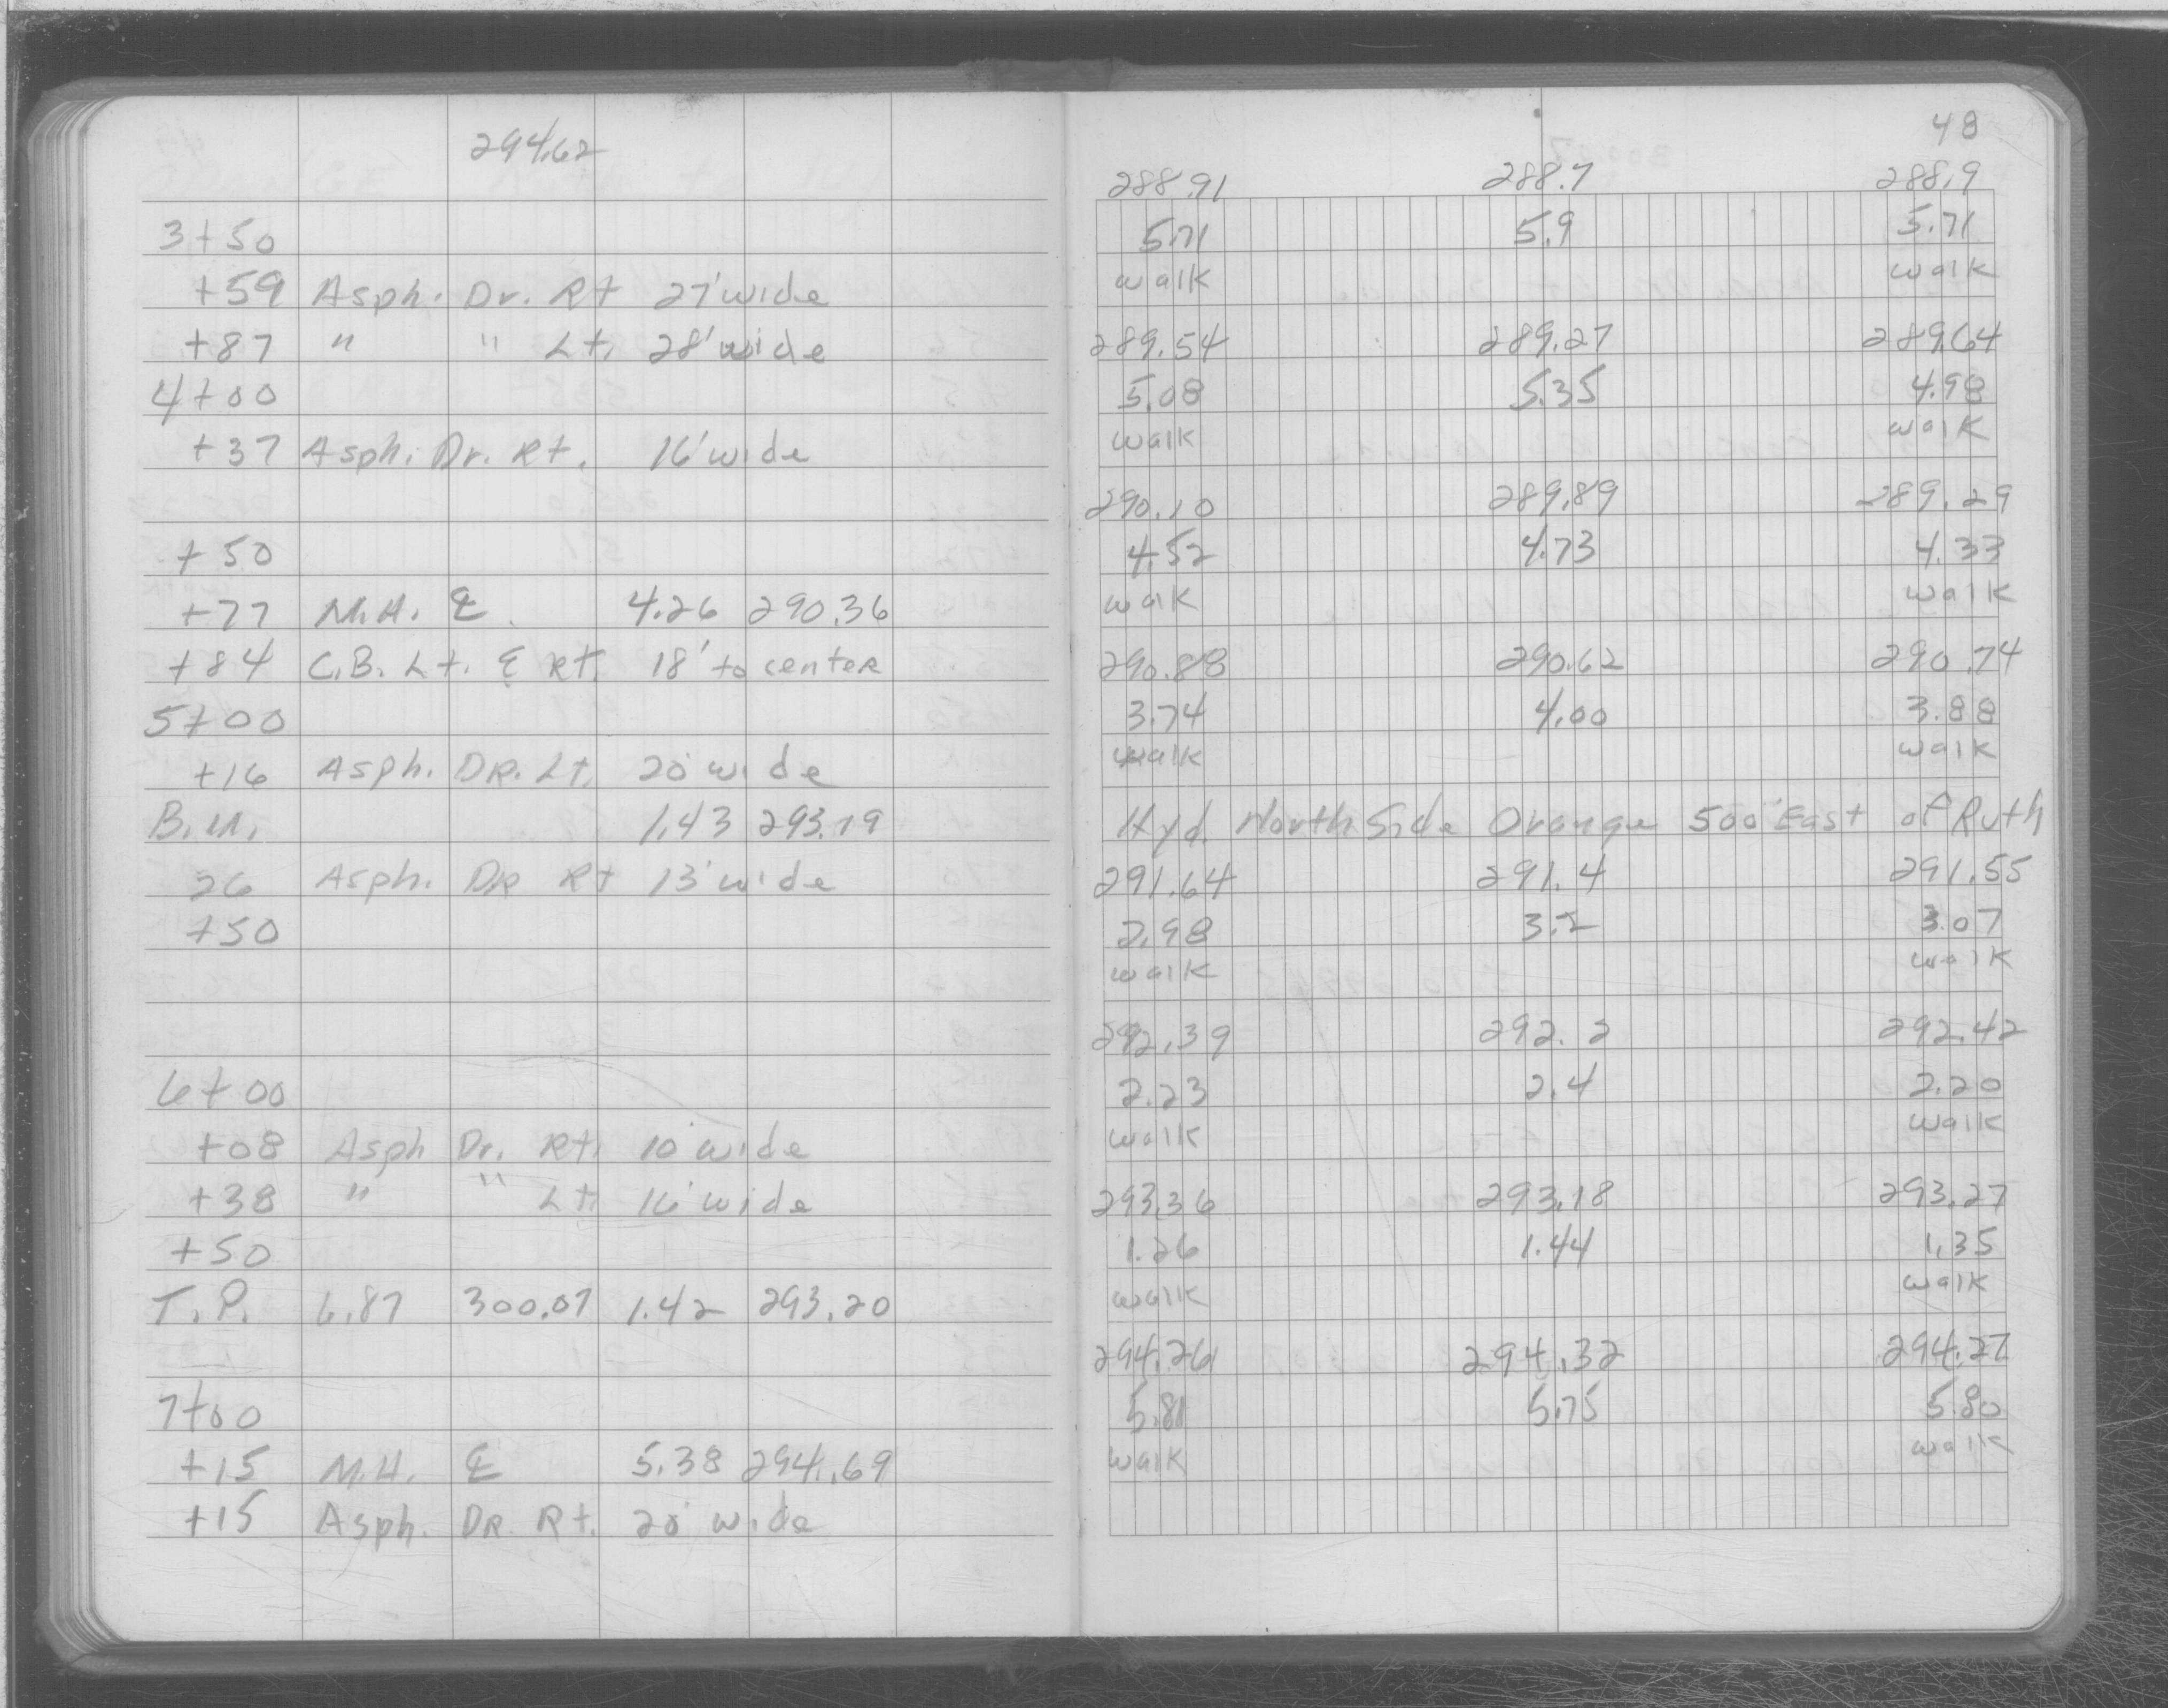 294.62
3+50
+59 Asph. Dr. Rt 27' wide
+87 " " Lt. 28' wide
4+00
+37 Asph. Dr. Rt. 16' wide
+50
+77 M.H. ℄ 4.26 290.36
+84 C.B. Lt. & Rt. 18' to center
5+00
+16 Asph. DR. Lt. 20' wide
B.M. 1.43 293.19
26 Asph. DR Rt 13' wide
+50
6+00
+08 Asph Dr. Rt. 10' wide
+38 " " Lt. 16' wide
+50
T.P. 6.87 300.07 1.42 293.20
7+00
+15 M.H. ℄ 5.38 294.69
+15 Asph. DR Rt. 20' wide
48
288.91 288.7 288.9
5.71 5.9 5.71
walk walk
289.54 289.27 289.64
5.08 5.35 4.98
walk walk
290.10 289.89 289.29
4.52 4.73 4.33
walk walk
290.88 290.62 290.74
3.74 4.00 3.88
walk walk
Hyd. North Side Orange 500' East of Ruth
291.64 291.4 291.55
2.98 3.2 3.07
walk walk
292.39 292.2 292.42
2.23 2.4 2.20
walk walk
293.36 293.18 293.27
1.26 1.44 1.35
walk walk
294.26 294.32 294.27
5.81 5.75 5.80
walk walk